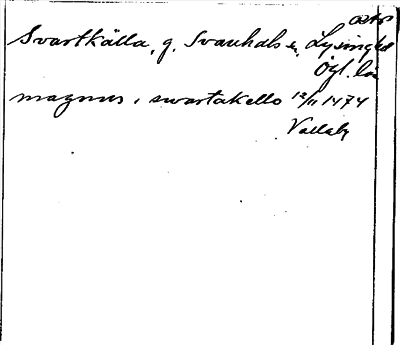 Svartkälla, g. Svanhals s. Lysings hd
Ögl. län
magnus i swartakello 12/11 1474